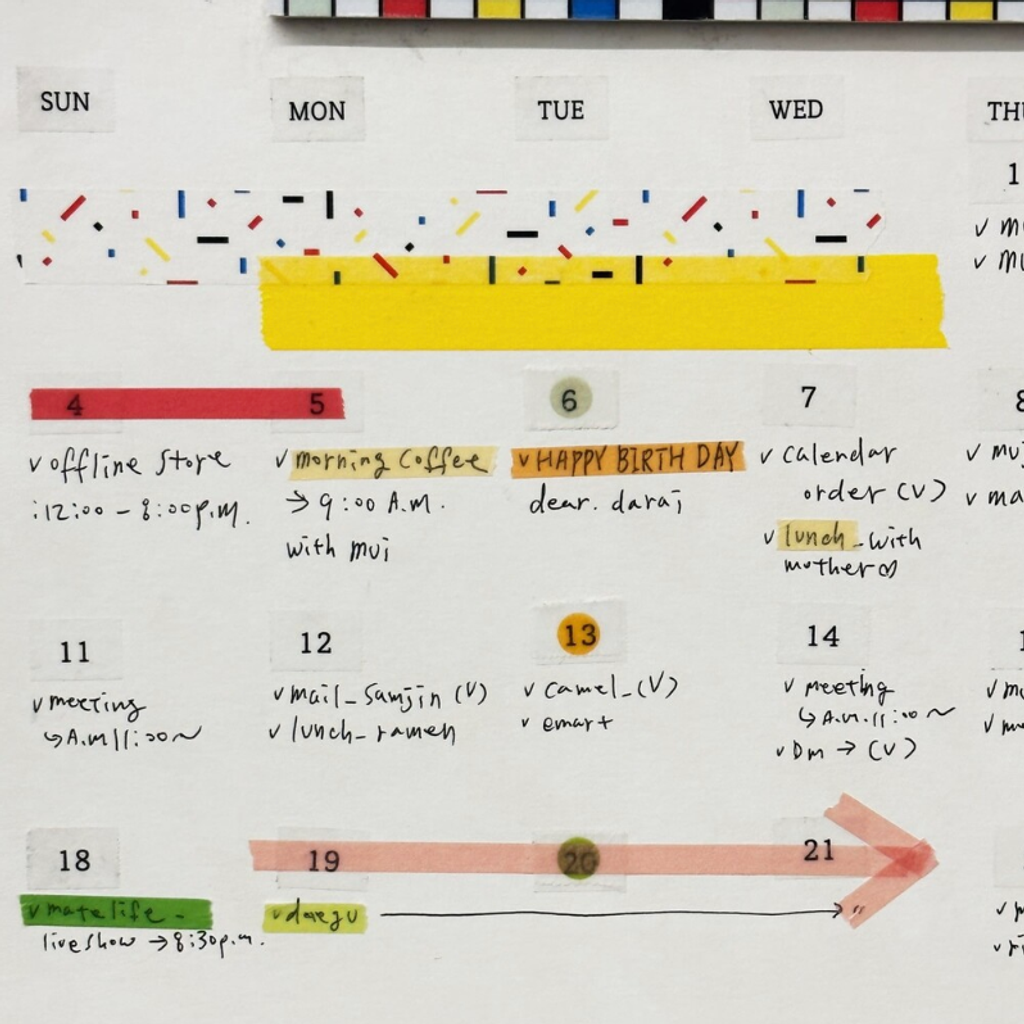 SUN MON TUE WED THU
1
4 5 6 7 8
v offline store
:12:00 - 8:00 p.m.
v morning coffee
→ 9:00 A.M.
with muj
v HAPPY BIRTH DAY
dear. daraj
v calendar
order (v)
v lunch_with
mother
11 12 13 14
v meeting
↳ A.M 11:00~
v mail_samjin (v)
v lunch_ramen
v camel_(v)
v emart
v meeting
↳ A.M. 11:00~
v Dm → (v)
18 19 20 21
v matelife -
liveshow → 8:30p.m.
v daegu → "